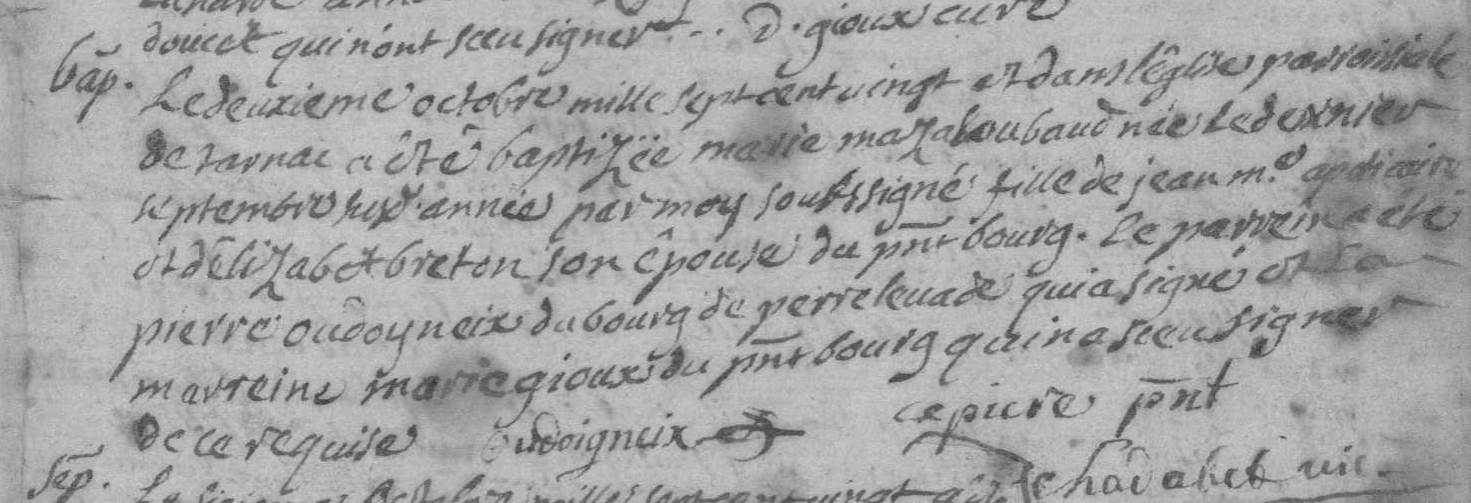 doucet qui n'ont sceu signer. .. D. gioux curé
bap. Le deuxieme octobre mille sept cent vingt et dans l'église parroissiale
de tarnac a été baptizée marie mazaloubaud née le dernier
septembre susd. année par moy soubssigné fille de jean m.e apoticaire
et d'elizabet breton son épouse du pñt bourg. le parrein a été
pierre oudoyneix du bourg de perrelevade qui a signé et la
marreine marie gioux du pñt bourg qui n'a sceu signer
de ce requise oudoigneix ce piere pñt
Sep. octobre mille sept cent vingt vic.